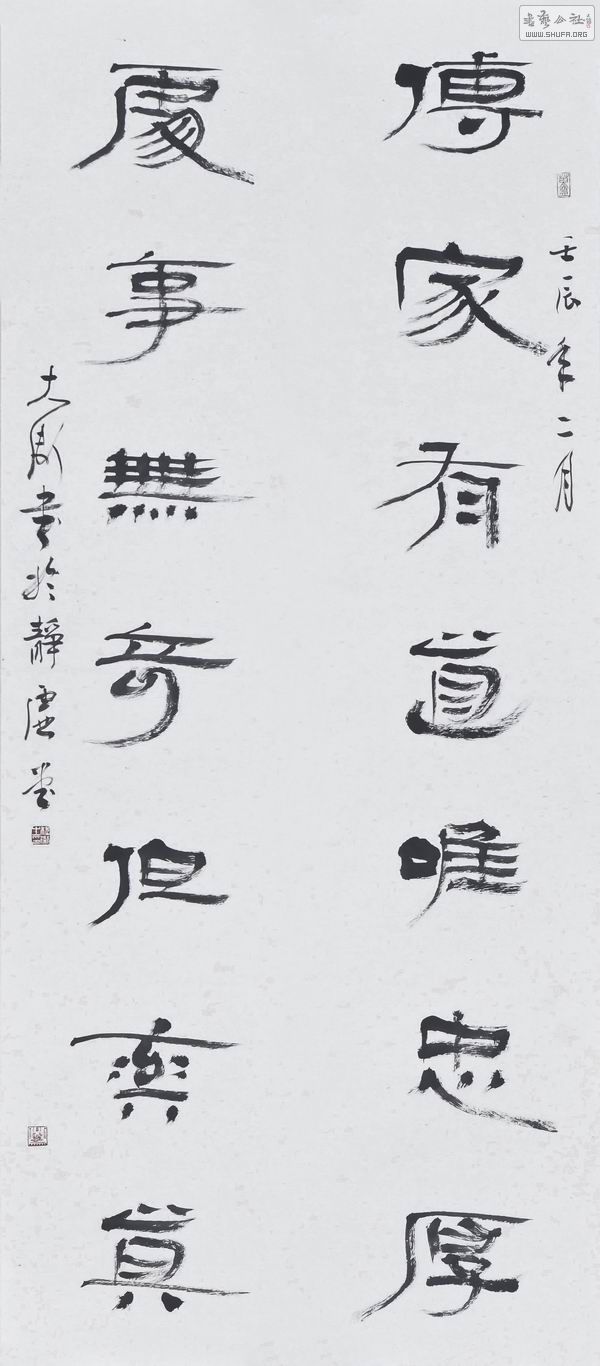 书艺公社
WWW.SHUFA.ORG
壬辰年二月
傳家有道唯忠厚
處事無奇但率真
大書於靜堂